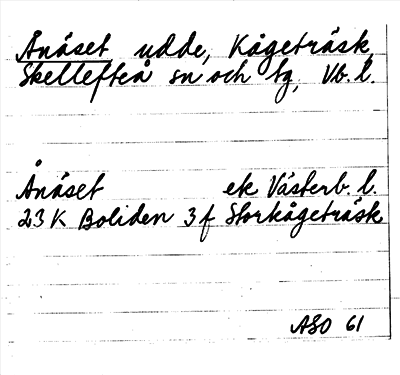 Ånäset udde, Kågeträsk,
Skellefteå sn och tg, Vb. l.
Ånäset ek Västerb. l.
23 K Boliden 3 f Storkågeträsk
ASO 61